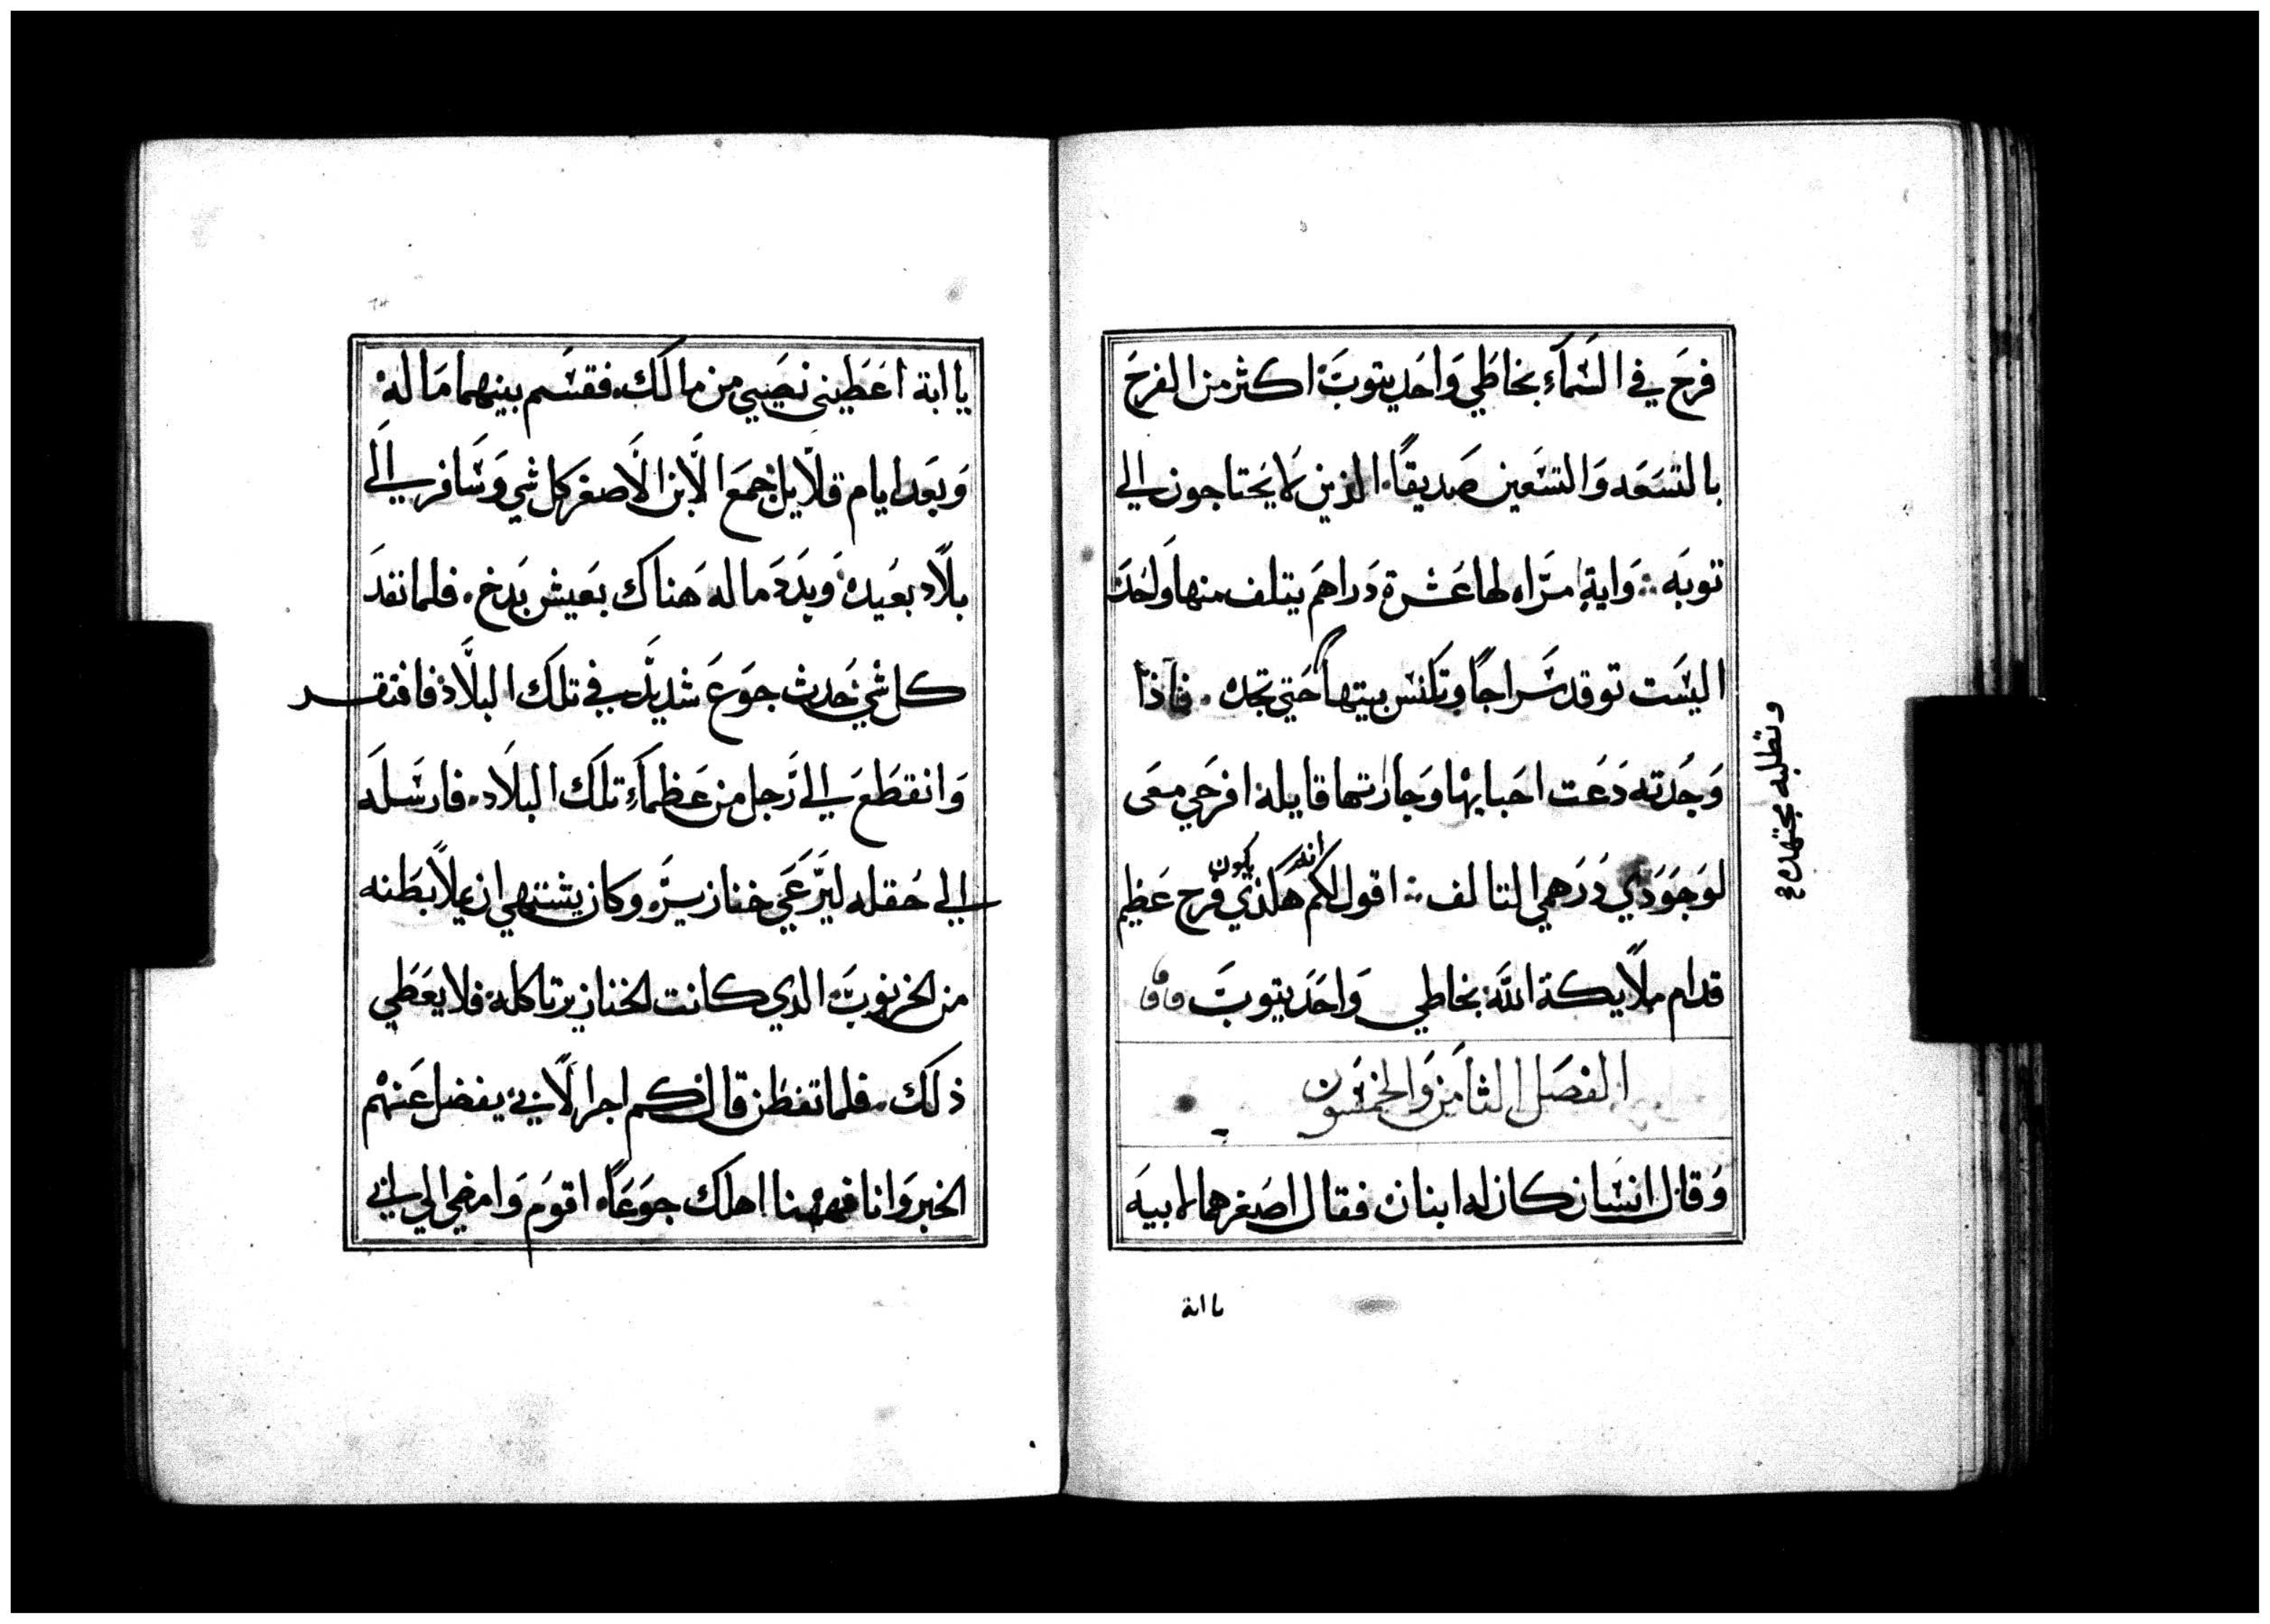 فرح في السَّمآءِ بخاطي وَاحَد يتوبَ اكثر من الفرح
بالتسَعَه وَالتسَعين صَديقاً الذين لا يحتاجون الى
توبَه ؞ وَاية امرَاه لها عَشرة دَراهَم يتلف منها وَاحَدَ
اليسَت توقد سَراجاً وتكنس بيتها حَتي تجده . فاذا
وتطلبه مجتهده
وَجَدته دَعَت احَبايها وَجَاراتها قايلة افرحَي معَى
لوَجوَدي دَرَهمي التالف ؞ اقول لكم انه هَكذي يكون فرح عَظيم
قدام ملايكة اللّه بخاطي وَاحَد يتوبَ
الفصَل الثامن وَالخمسَون
وَقال انسَان كان له ابنان فقال اصَغرهما لابيه
يا ابة
يا ابة اعَطيني نصَيبي من مالك. فقسَم بينهما مَاله
وَبعَد ايام قلايل جمعَ الابن الاصغر كل شي وَسَافر الي
بلاد بعَيده وَبدَدَ ماله هَناك بعَيش بَدخ . فلما نفدَ
كل شي حَدث جوَعَ شديد في تلك البلاد فافتقر
وَانقطَعَ الي رَجل من عَظماءِ تلك البلاد. فارسَله
الي حَقله ليرَعَي خنازيرَه وكان يشتهي ان يملا بطَنه
من الخرنوبَ الدي كانت الخنازير تاكله فلا يعَطَي
ذلك. فلما تفطن قال كم اجرا لابي يفضل عَنهم
الخبز وَانا فههنا اهلك جوَعَاً اقوَم وَامضي الي ابي